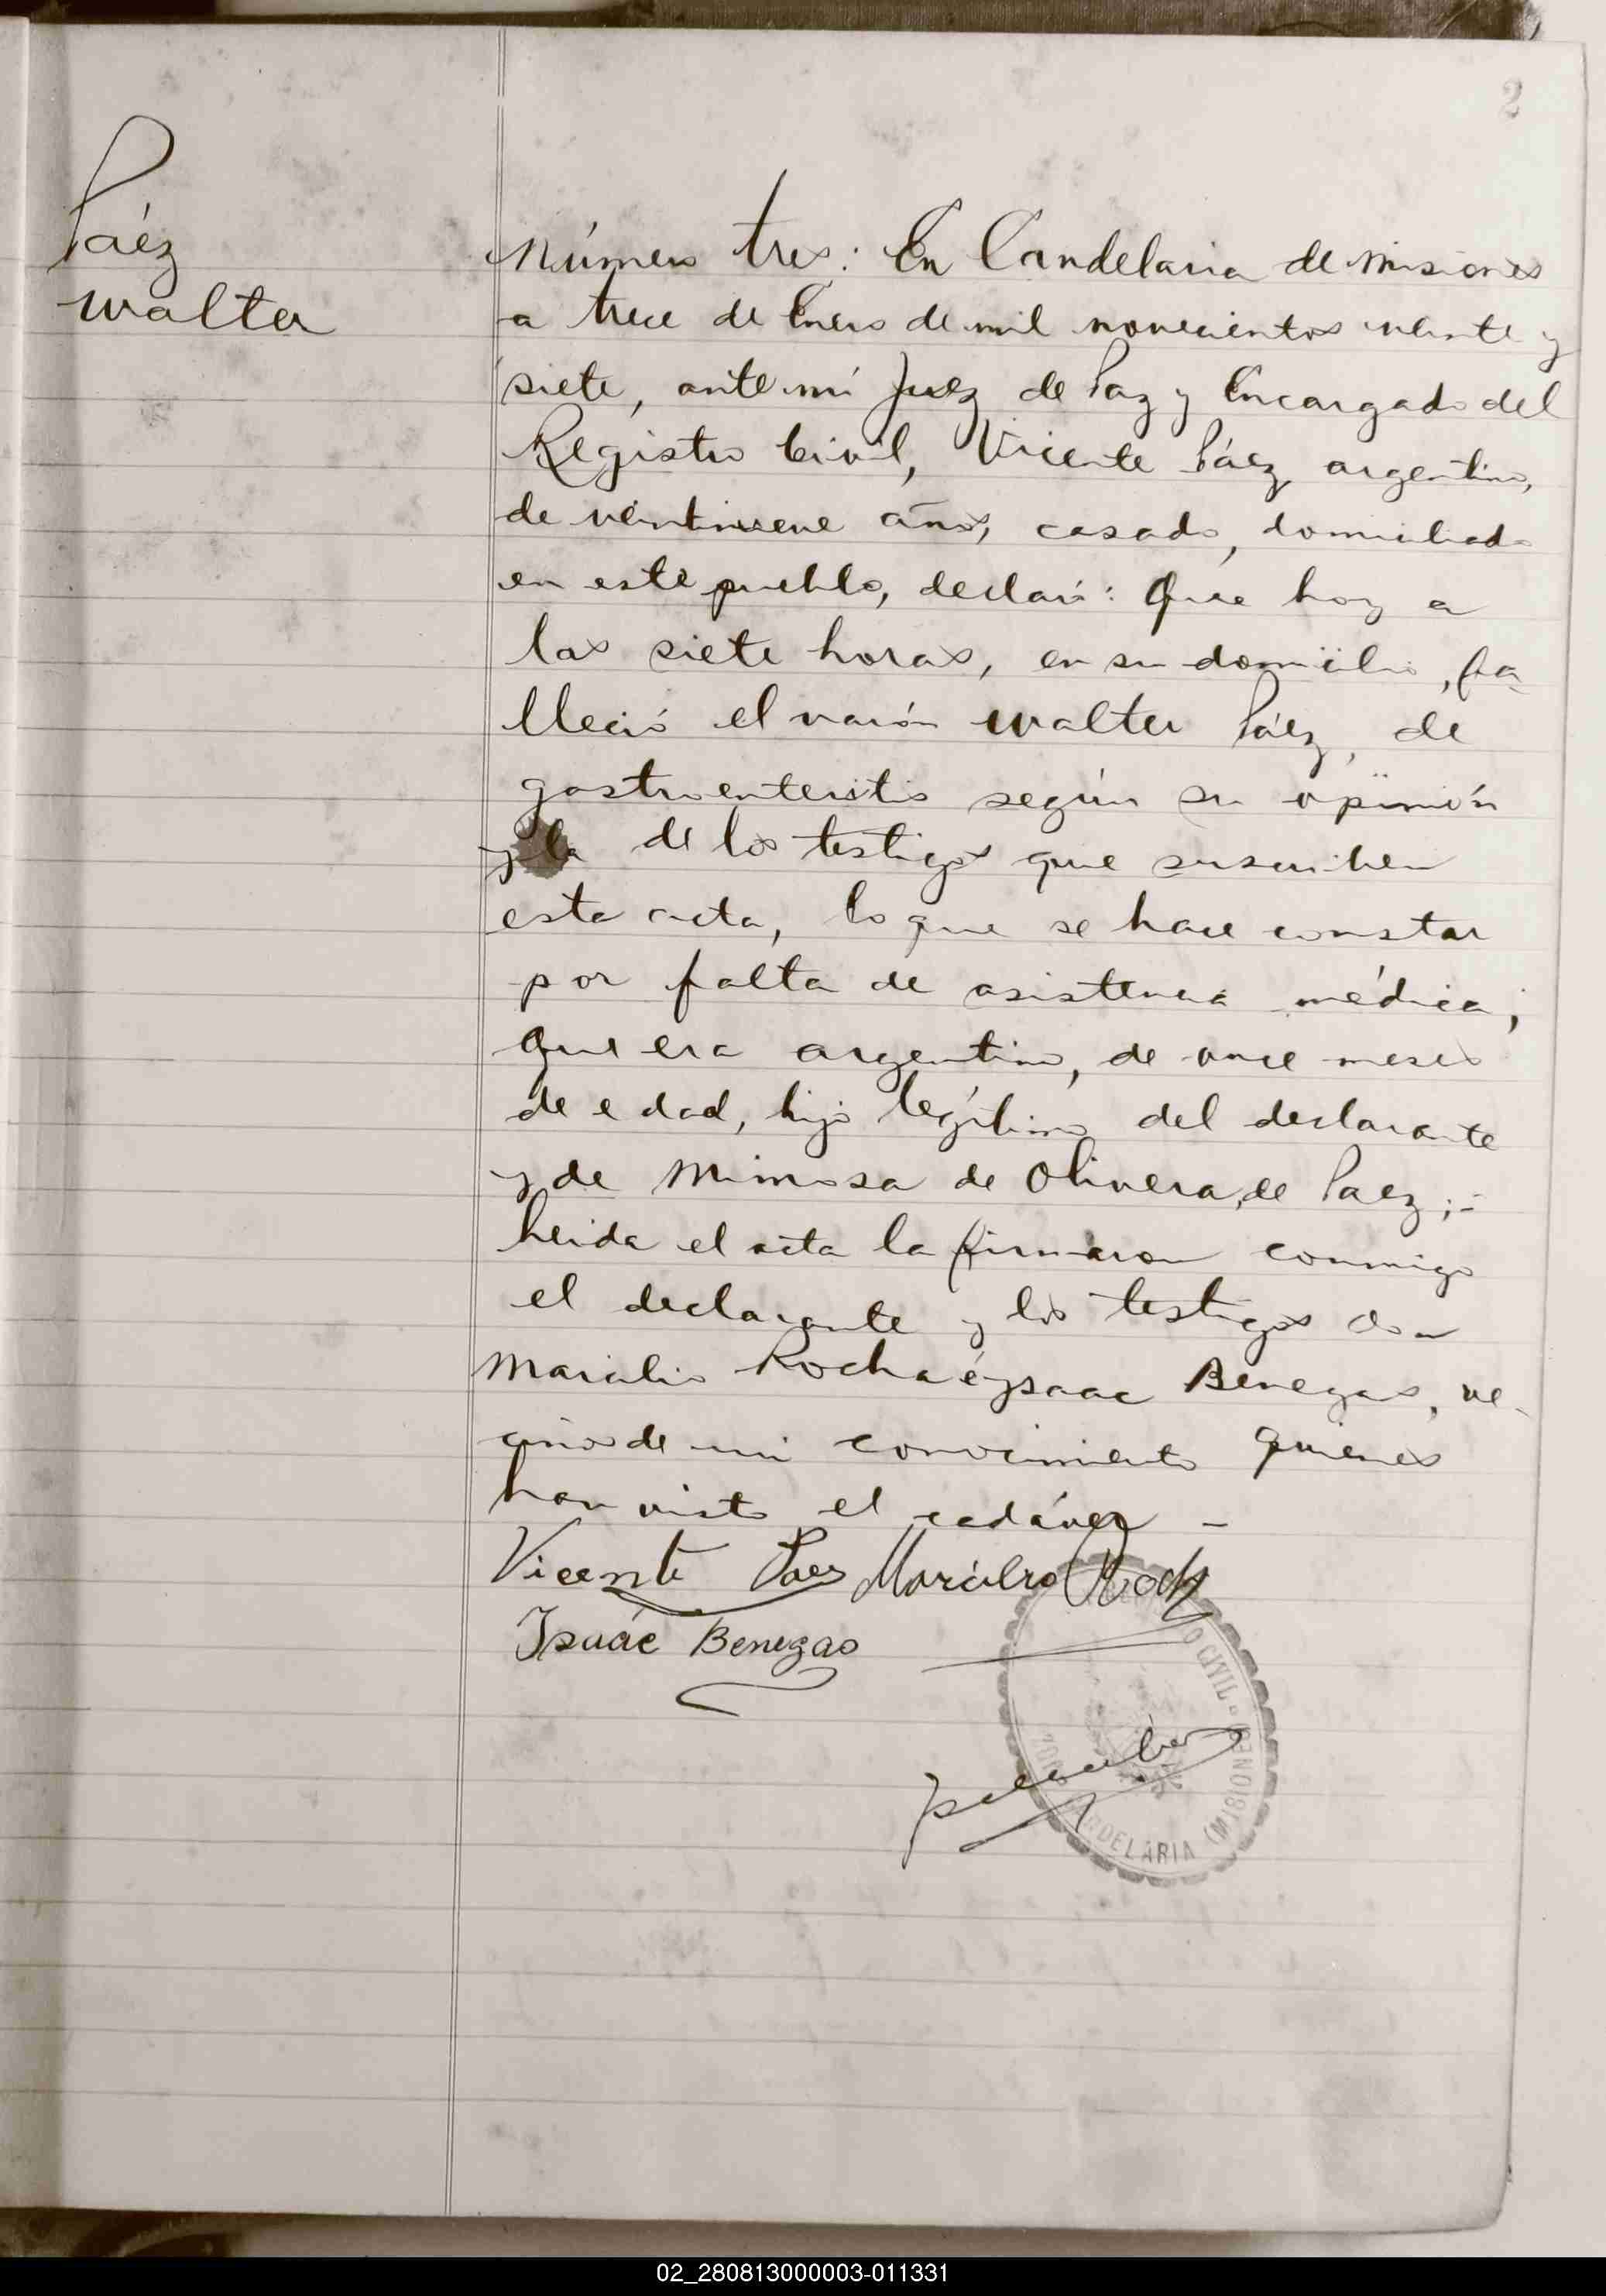 2
Páez
Walter
Número tres: En Candelaria de Misiones
a trece de Enero de mil novecientos veinte y
siete, ante mí Juez de Paz y Encargado del
Registro Civil, Vicente Páez, argentino,
de veintinueve años, casado, domiciliado
en este pueblo, declaró: Que hoy a
las siete horas, en su domicilio, fa-
lleció el varón Walter Páez, de
gastroenteritis según su opinión
y la de los testigos que suscriben
esta acta, lo que se hace constar
por falta de asistencia médica;
que era argentino, de once meses
de edad, hijo legítimo del declarante
y de Mimosa de Olivera de Paez;-
leida el acta la firmaron conmigo
el declarante y los testigos don
Marcilio Rocha é Ysaac Benegas, ve-
cinos de mi conocimiento quienes
han visto el cadáver -
Vicente Paez Marcilio Roch
Isaác Benegas
O CIVIL - CANDELARIA (MISIONES)
02_280813000003-011331